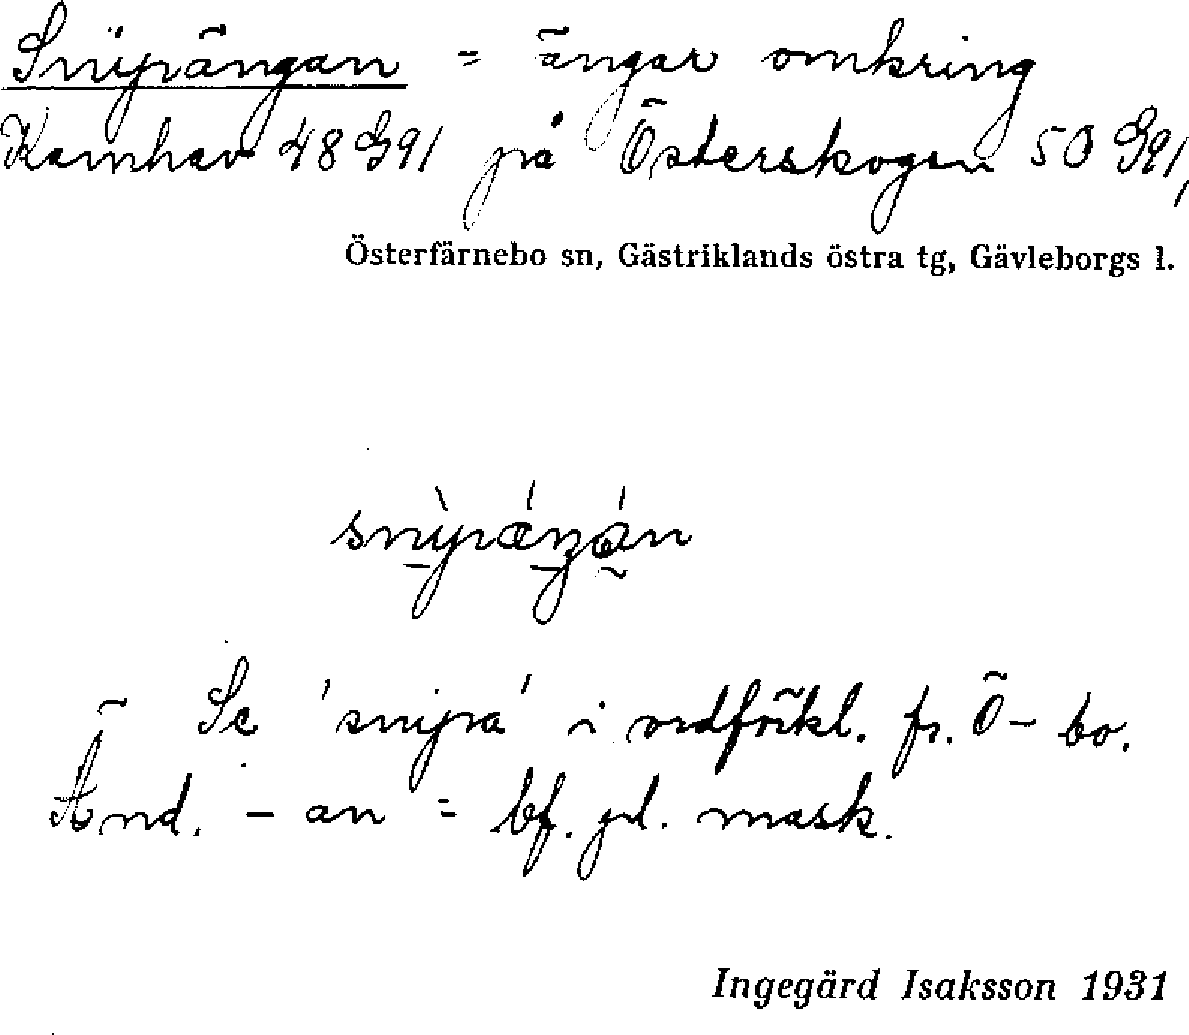 Snipängan = ängar omkring
Kamhav 48 G91 på Österskogen 50 G91,
Österfärnebo sn, Gästriklands östra tg, Gävleborgs l.
Se 'snipa' i ordförkl. fr. Ö-bo.
Änd. - an = bf. pl. mask.
Ingegärd Isaksson 1931